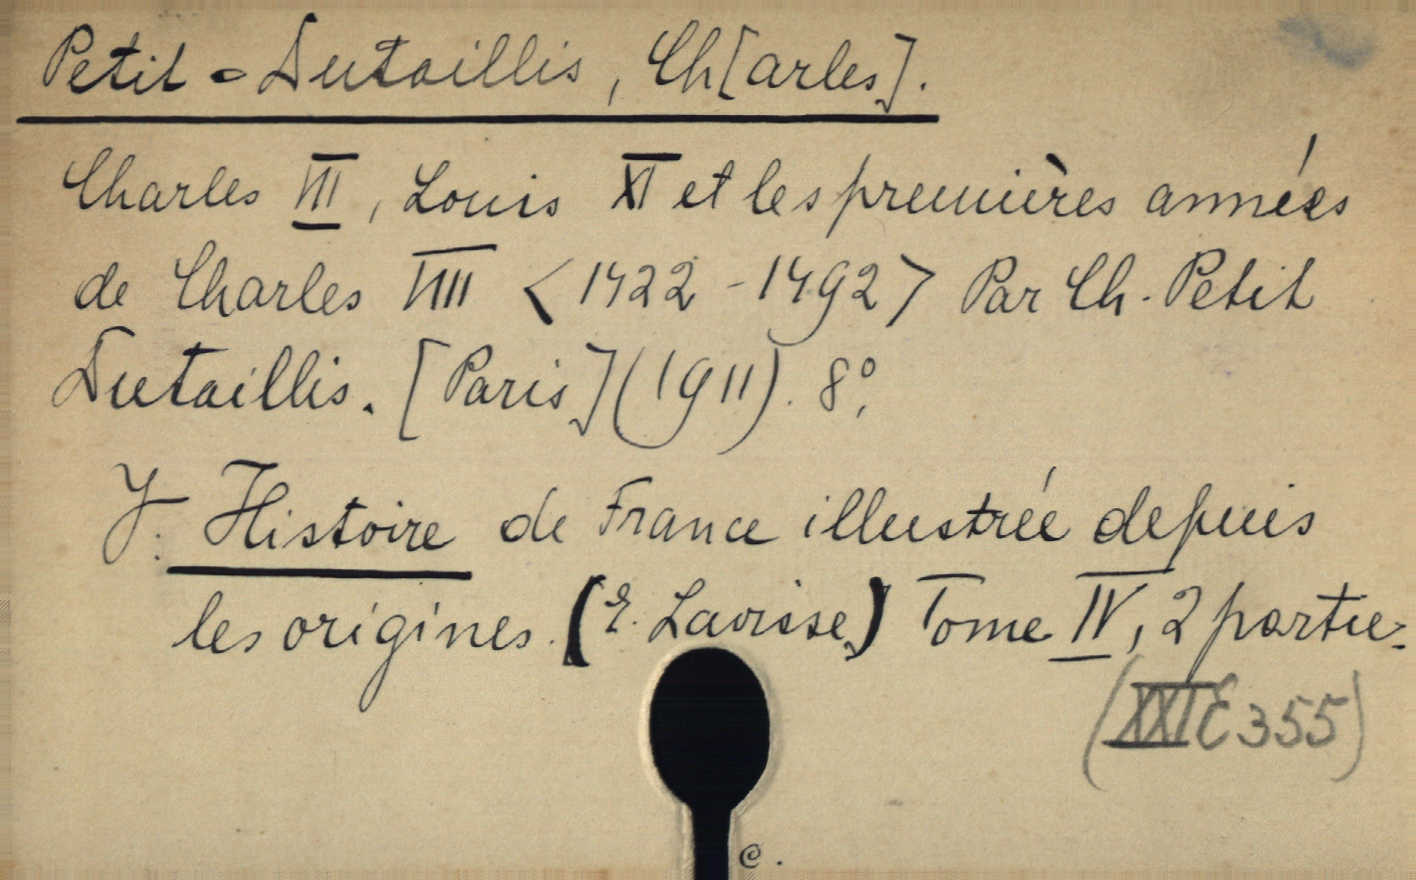 Petit-Dutaillis, Ch[arles].
Charles VII, Louis XI et les premières années
de Charles VIII <1422-1492> Par Ch. Petit
Dutaillis. [Paris] (1911). 8°.
J: Histoire de France illustrée depuis
les origines. (E. Lavisse) Tome IV, 2 partie.
(XXI E 355)
e.